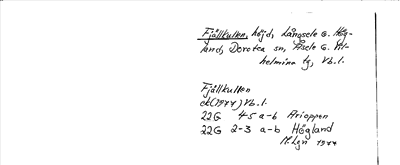 Fjällkullen, höjd, Långsele o. Hög-
land, Dorotea sn, Åsele o. Vil-
helmina tg, Vb. l.
Fjällkullen
ek (1977) Vb. l.
22G 4-5 a-b Arioppen
22G 2-3 a-b Högland
M. Lgn 1977